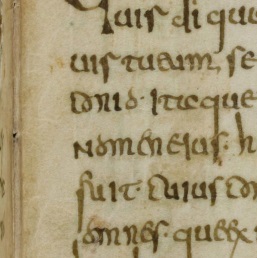 quis di que
uis tuam, se
donio. itaque
nomen eius. h
fuit. cuius do
omnes. quae